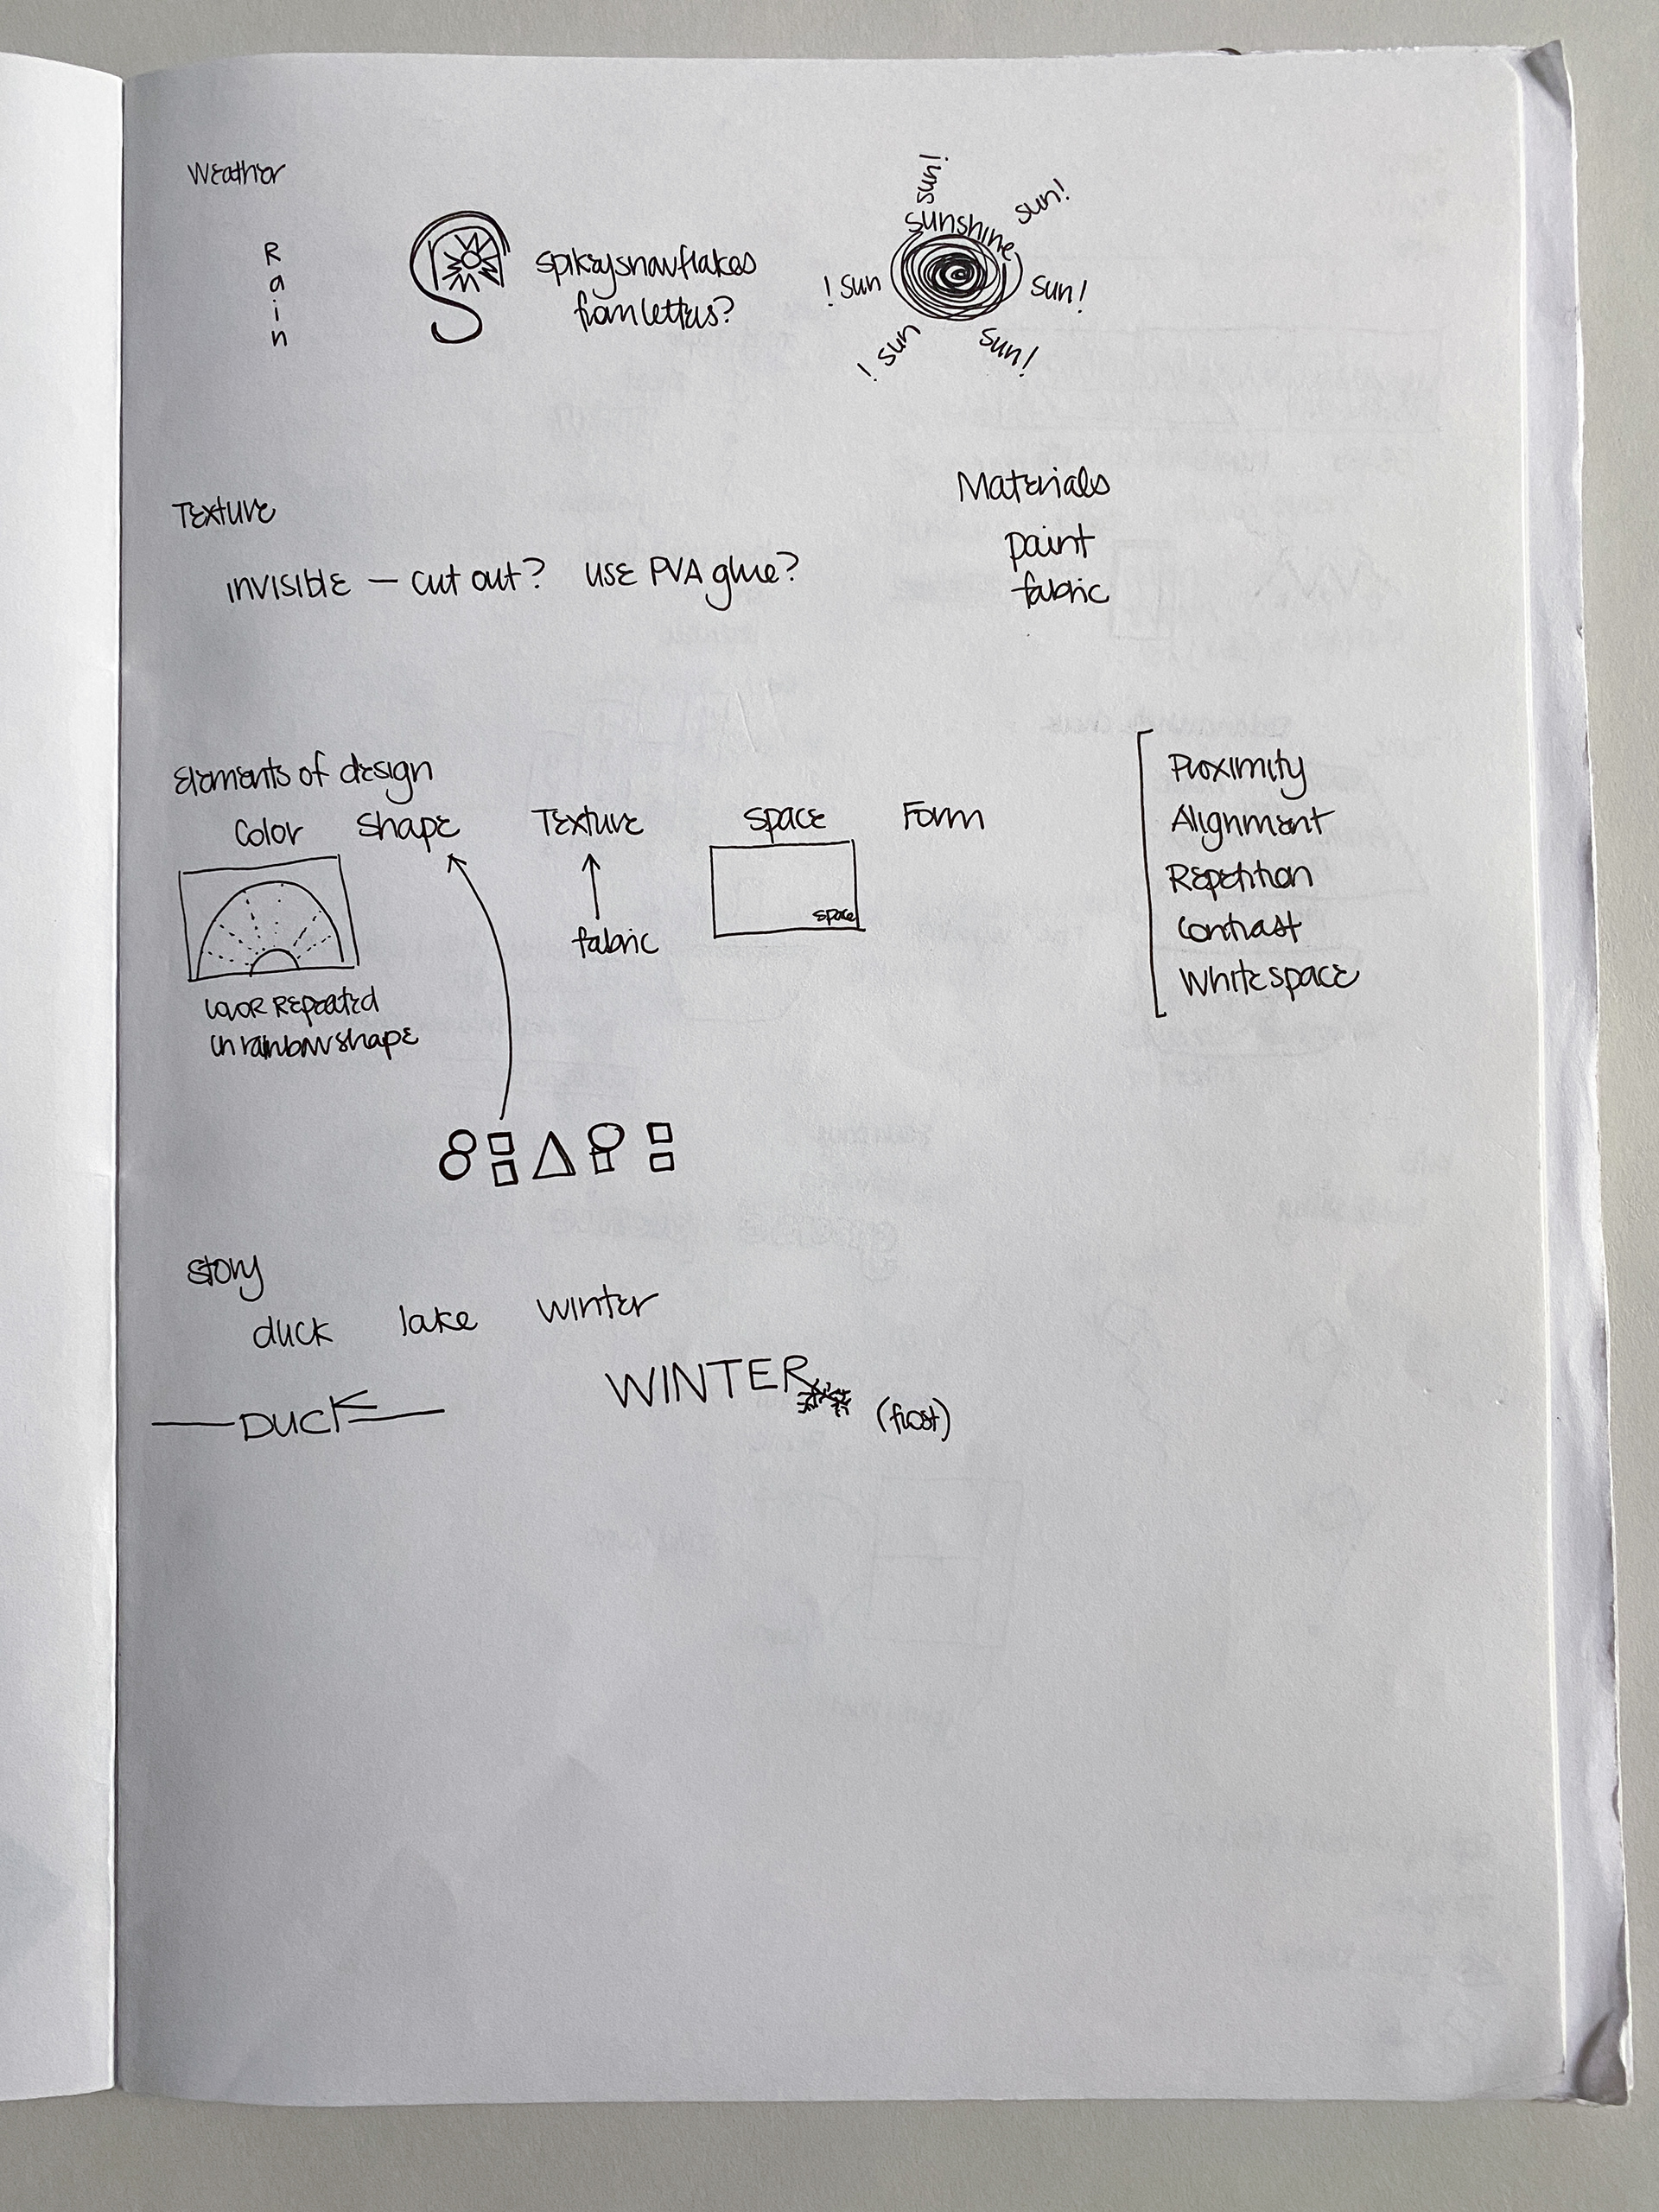 Weather
R
a
i
n
S
spikey snowflakes
from letters?
sun!
sun!
sunshine
! sun
sun!
! sun
sun!
Texture
invisible — cut out? use PVA glue?
Materials
paint
fabric
Elements of design
Color shape Texture space Form
space
fabric
color repeated
in rainbow shape
Proximity
Alignment
Repetition
Contrast
White space
story
duck lake winter
DUCK
WINTER
(frost)